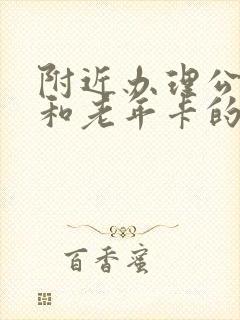 附近办理公
和老年卡的
百香蜜